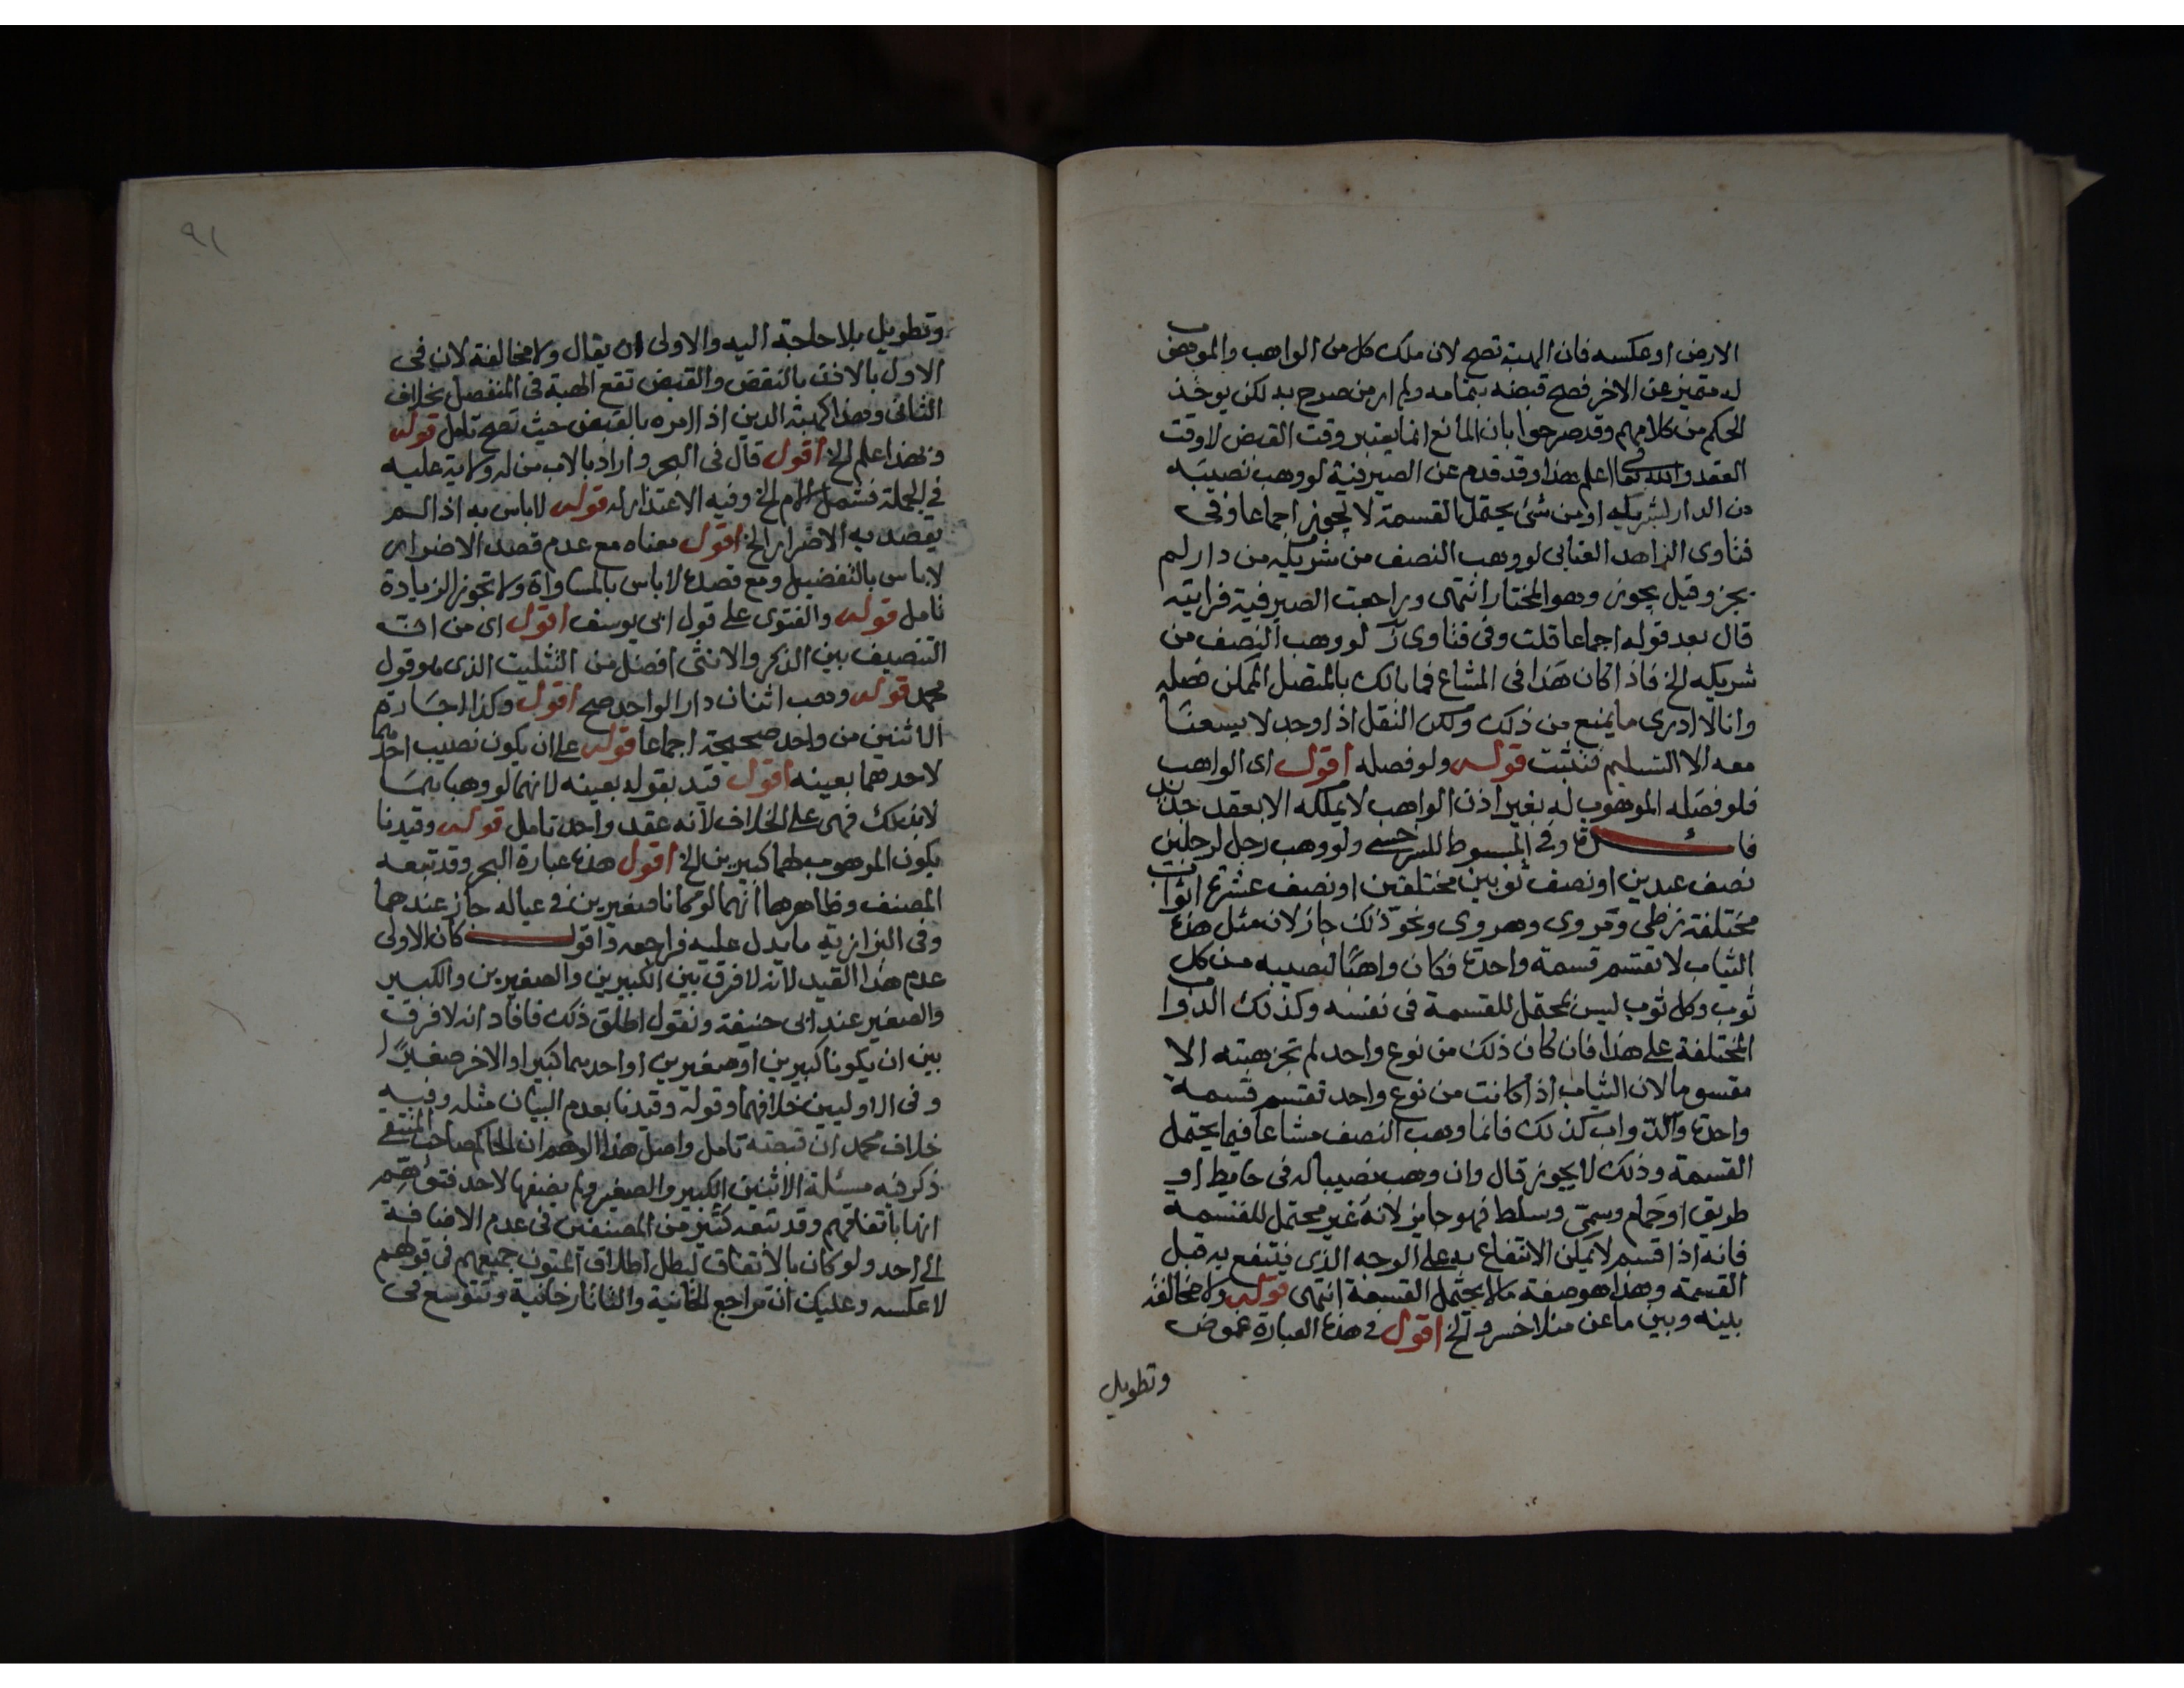 الارض او عكسه فان الهبة تصح لان ملك كل من الواهب والموهوب
له متميز عن الاخر فصح قبضه بتمامه ولم ار من صرح به لكن يوخذ
الحكم من كلامهم وقد صرحوا بان المانع انما يعتبر وقت القبض لا وقت
العقد والله تعا اعلم هذا وقد قدم عن الصيرفية لو وهب نصيبه
من الدار لشريكه او من شئ يحتمل القسمة لا يجوز اجماعا وفى
فتاوى الزاهد العتابى لو وهب النصف من شريكه من دار لم
يجز وقيل يجوز وهو المختار انتهى وراجعت الصيرفية فرايته
قال بعد قوله اجماعا قلت وفى فتاوى لو وهب النصف من
شريكه الخ فاذا كان هذا فى المشاع فما بالك بالمتصل الممكن فصله
وانا لا ادرى ما يمنع من ذلك ولكن النقل اذا وجد لا يسعنا
معه الا التسليم فتثبت قوله ولو فصله اقول اى الواهب
فلو فصله الموهوب له بغير اذن الواهب لا يملكه الا بعقد جديد
فائدة وفى المبسوط للسرخسى ولو وهب رجل لرجلين
نصف عبدين او نصف ثوبين مختلفين او نصف عشرة اثواب
مختلفة زطى ومروى وهروى ونحو ذلك جاز لان مثل هذه
الثياب لا تقسم قسمة واحدة فكان واهبًا لنصيبه من كل
ثوب وكل ثوب ليس بمحتمل للقسمة فى نفسه وكذلك الدواب
المختلفة على هذا فان كان ذلك من نوع واحد لم تجز هبته الا
مقسوما لان الثياب اذا كانت من نوع واحد تقسم قسمة
واحدة والدواب كذلك فانما وهب النصف مشاعا فيما يحتمل
القسمة وذلك لا يجوز قال وان وهب نصيبا له فى حايط او
طريق او حمام وسمى وسلط فهو جايز لانه غير محتمل للقسمة
فانه اذا قسم لا يمكن الانتفاع به على الوجه الذى ينتفع به قبل
القسمة وهذا هو صفة ما لا يحتمل القسمة انتهى قوله ولا مخالفة
بينه وبين ما عن منلا خسرو الخ اقول فى هذه العبارة غموض
وتطويل
٩١
وتطويل بلا حاجة اليه والاولى ان يقال ولا مخالفة لان فى
الاول بالاذن بالنقض والقبض تقع الهبة فى المنفصل بخلاف
الثانى وهذا كهبة الدين اذا امره بالقبض حيث تصح تامل قوله
وبهذا علم الخ اقول قال فى البحر واراد بالاب من له ولاية عليه
فى الجملة فشمل الام الخ وفيه الاعتذار له قوله لا باس به اذا لم
يقصد به الاضرار الخ اقول معناه مع عدم قصد الاضرار
لا باس بالتفضيل ومع قصده لا باس بالمساواة ولا تجوز الزيادة
تامل قوله والفتوى على قول ابى يوسف اقول اى من ان
التنصيف بين الذكر والانثى افضل من التثليث الذى هو قول
محمد قوله وهب اثنان دارا لواحد صح اقول وكذا اجارة
الاثنين من واحد صحيحة اجماعا قوله على ان يكون نصيب احدهما
لاحدهما بعينه اقول قيد بقوله بعينه لانهما لو وهبا
لابنك فهى على الخلاف لانه عقد واحد تامل قوله وقيدنا
بكون الموهوب لهما كبيرين الخ اقول هذه عبارة البحر وقد تبعه
المصنف وظاهرها انهما لو كانا صغيرين فى عياله جاز عندهما
وفى البزازية ما يدل عليه فراجعه واقول كان الاولى
عدم هذا القيد لانه لا فرق بين الكبيرين والصغيرين والكبير
والصغير عند ابى حنيفة ونقول اطلق ذلك فافاد انه لا فرق
بين ان يكونا كبيرين او صغيرين او احدهما كبيرا والاخر صغيرًا
وفى الاوليين خلافهما وقوله وقيدنا بعدم البيان مثله وفيه
خلاف محمد ان قبضه تامل واصل هذا الوهم ان الحاكم صاحب المنتقى
ذكر فيه مسئلة الاثنين الكبير والصغير ولم يضفها لاحد فتوهم
انها باتفاقهم وقد تبعه كثير من المصنفين فى عدم الاضافة
الى احد ولو كان بالاتفاق لبطل اطلاق المتون جميعهم فى قولهم
لا عكسه وعليك ان تراجع الخانية والتاتارخانية وتتوسع فى